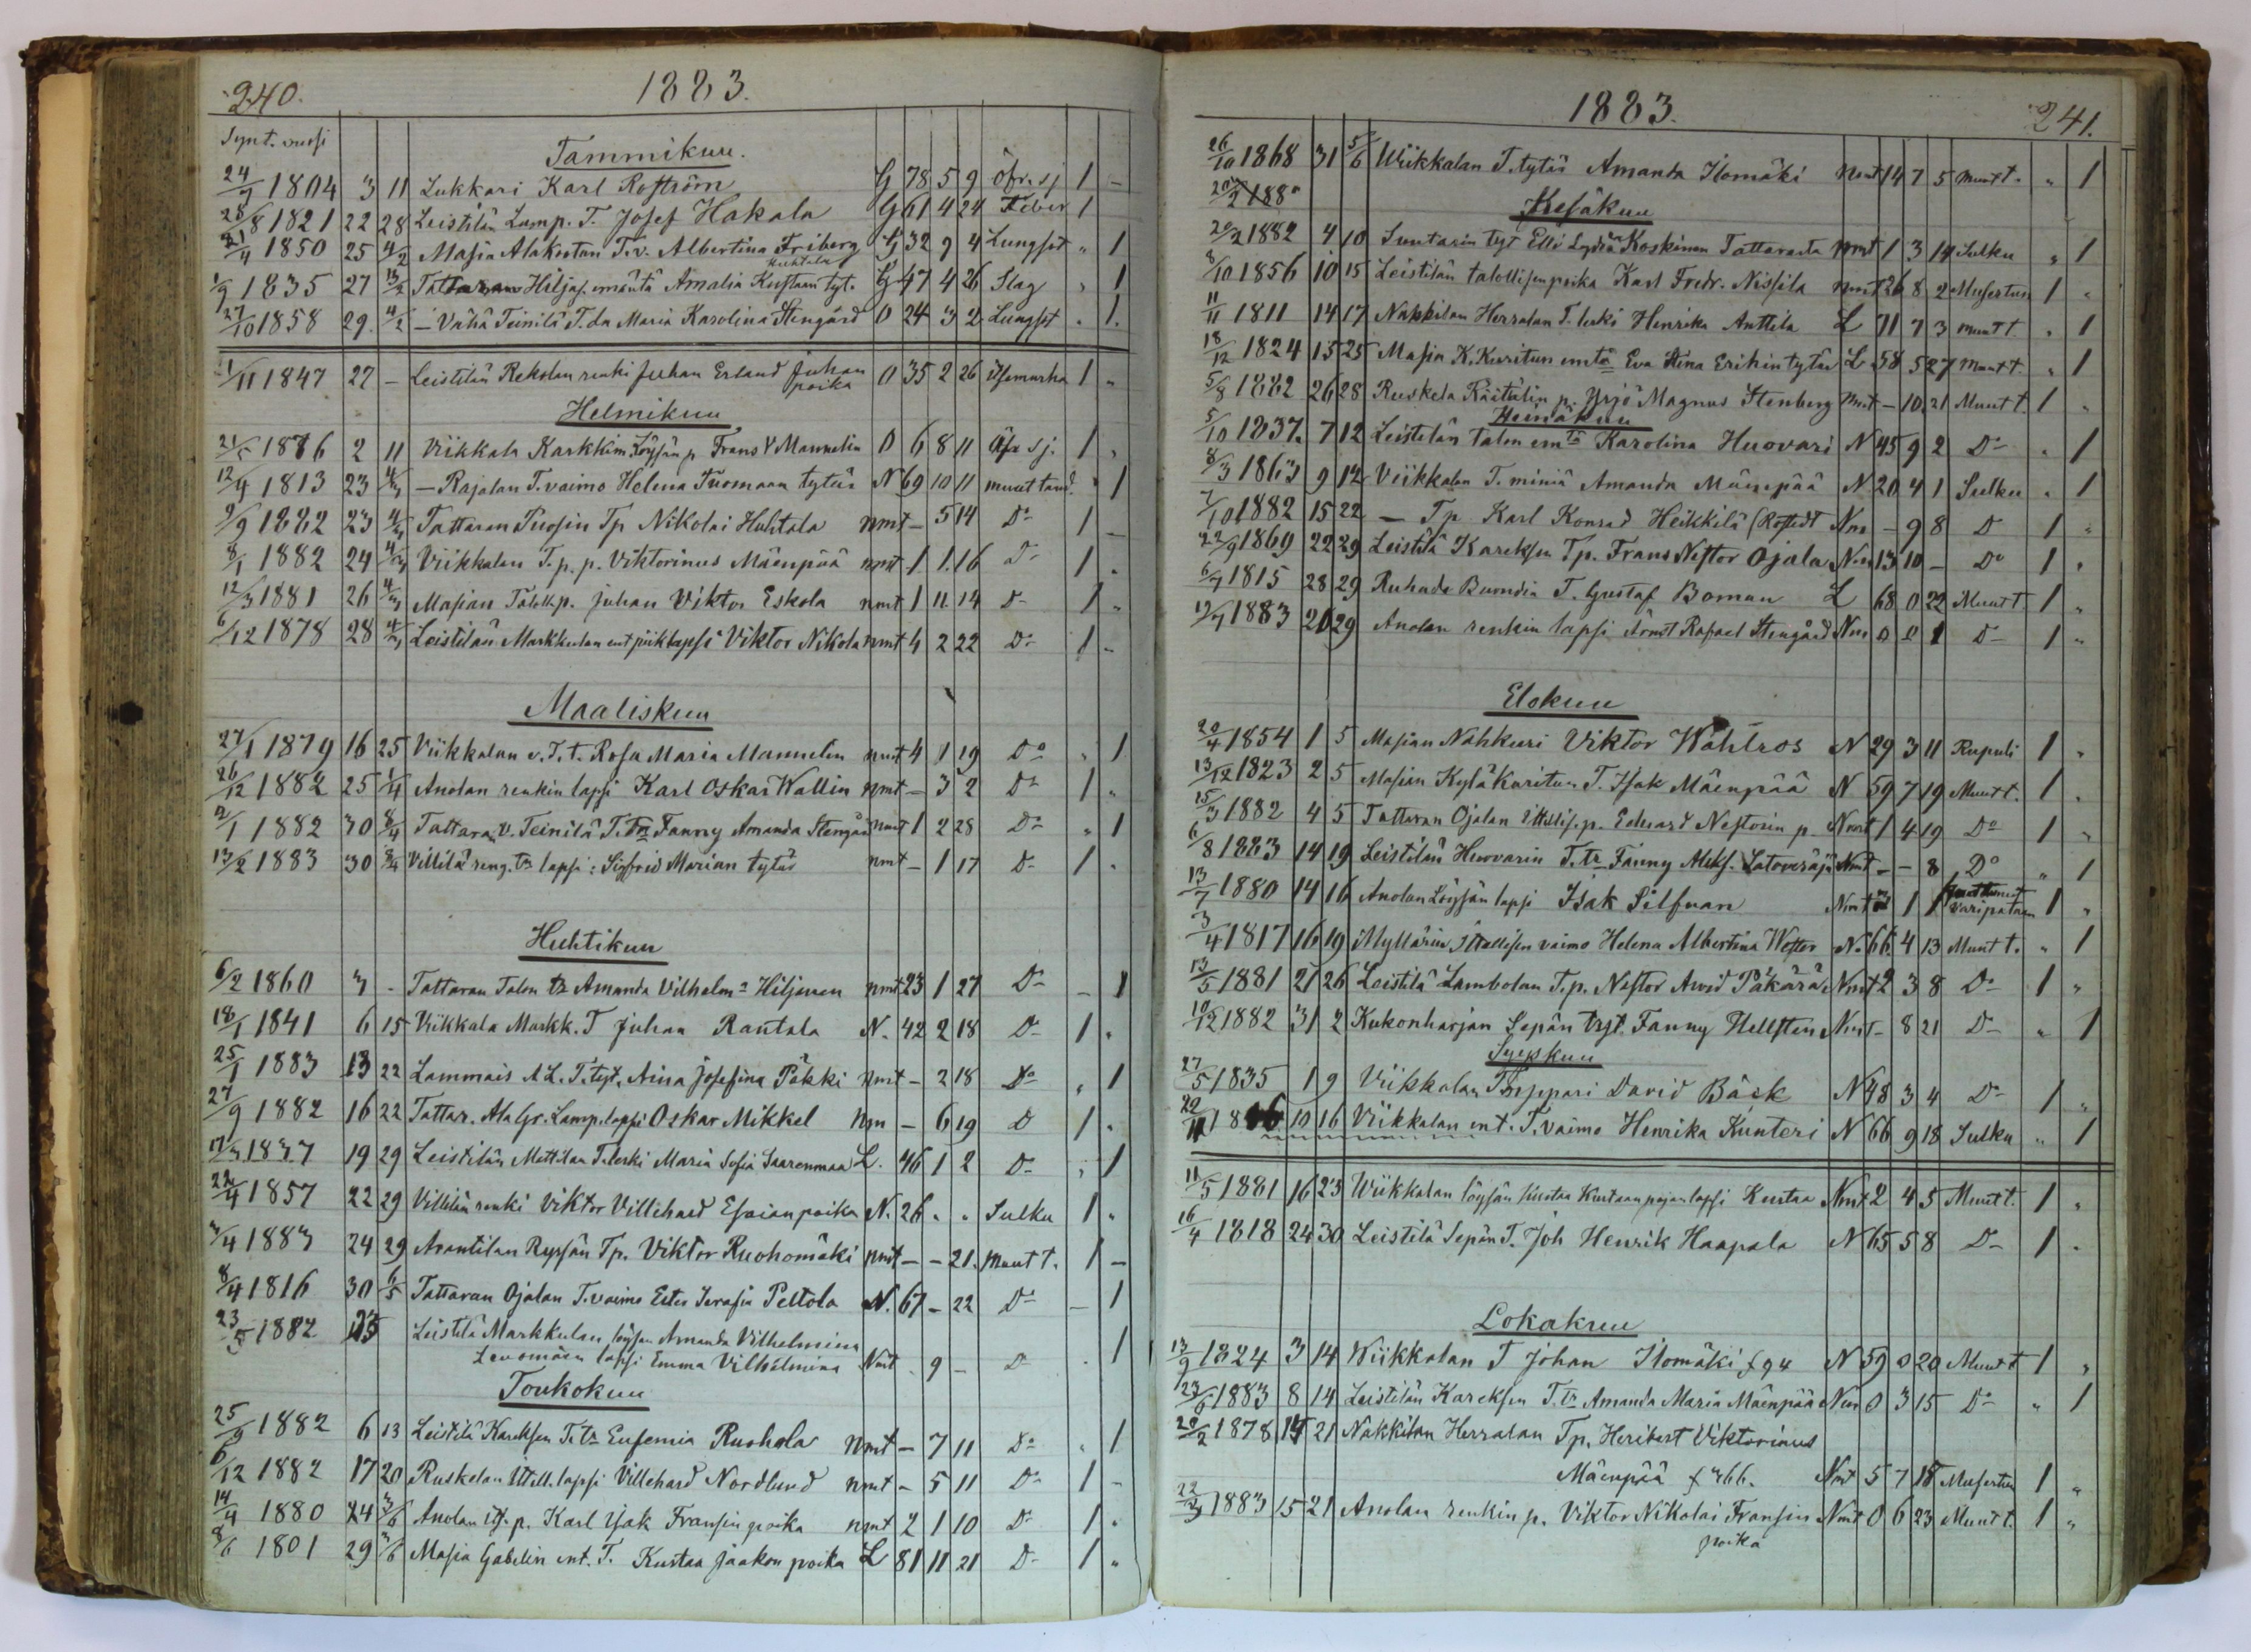 240.
1883.
Synt. vuosi
Tammikuu.
24/7 1804 3 11 Lukkari Karl Roström G 78 5 9 Öfr. sj 1 -
28/8 1821 22 28 Leistilän Lamp. T. Josef Hakala G 61 4 24 Feber 1
21/4 1850 25 4/2 Masia Alakortan T.v. Albertina Friberg G 32 9 4 Lungsot " 1
Huhtala
1/9 1835 27 13/2 Tattaran Hiljas. emäntä Amalia Kustaan tyt. G 47 4 26 Slag " 1
27/10 1858 29. 4/2 - Vähä Teinilä T. da Maria Karolina Stengård O 24 3 2 Lungsot . 1.
1/11 1847 27 - Leistilän Rekolan renki Juhan Erland Juhan O 35 2 26 Itsemurha 1 "
poika
Helmikuu
21/5 1876 2 11 Viikkala Karkkim. Löysän p Frans V Mannelin O 6 8 11 Öfr sj. 1 "
12/4 1813 23 4/3 - Rajalan T. vaimo Helena Tuomaan tytär N 69 10 11 muut taud. " 1
9/9 1882 23 4/3 Tattaran Pusin Tp Nikolai Huhtala nmt - 5 14 Do 1 -
8/1 1882 24 4/3 Viikkalan T. p. p. Viktorinus Mäenpää nmt 1 1 16 Do 1 "
12/3 1881 26 4/3 Masian Talollp. Juhan Viktor Eskola nmt 1 11 14 D- 1 "
6/12 1878 28 4/3 Leistilän Markkulan ent piiklapsi Viktor Nikola nmt 4 2 22 Do 1 -
Maaliskuu
27/1 1879 16 25 Viikkalan v. T. t. Rosa Maria Mannelin nmt 4 1 19 Do " 1
26/12 1882 25 1/4 Anolan renkin lapsi Karl Oskar Wallin nmt - 3 2 Do 1 "
2/1 1882 30 8/4 Tattara, V. Teinilä T. Tr Fanny Amanda Stengård nmt 1 2 28 Do " 1
13/2 1883 30 8/4 Villilä reng. tr lapsi: Sigfrid Marian tytär nmt - 1 17 D- 1 "
Huhtikuu
6/2 1860 3 - Tattaran Talon tr Amanda Vilhelm- Hiljanen nmt 23 1 27 Do - 1
18/1 1841 6 15 Viikkala Markk. T Juhan Rautala N. 42 2 18 Do 1 "
25/1 1883 13 22 Lammais A.L. T. tyt. Aina Josefina Päkki nmt - 2 18 Do " 1
27/9 1882 16 22 Tattar. Ala Gr. Lamp. lapsi Oskar Mikkel nm - 6 19 D 1 "
17/3 1837 19 29 Leistilän Mettilan T. leski Maria Sofia Saarenmaa L. 46 1 2 D- " 1
22/4 1857 22 29 Villilän renki Viktor Villehard Esaian poika N. 26 " " Sulku 1 "
3/4 1883 24 29 Anantilan Ryssän Tp. Viktor Ruohomäki nmt - - 21. muut t. 1 -
8/4 1816 30 6/5 Tattaran Ojalan T. vaimo Ester Serafia Peltola N. 67 - 22 Do - 1
23/5 1882 Leistilä Markkulan löysän Amanda Vilhelmina
Levomäen lapsi Emma Vilhelmina Nmt . 9 - D . 1
Toukokuu
25/9 1882 6 13 Leistilä Kareksen T. tr Eufemia Ruohola nmt - 7 11 Do " 1
6/12 1882 17 20 Ruskelan Itsell. lapsi Villehard Nordlund nmt - 5 11 Do 1 -
14/4 1880 24 3/6 Anolan its. p. Karl Isak Fransin poika nmt 2 1 10 Do 1 "
8/6 1801 29 3/6 Masia Gabelin ent. T. Kustaa Jaakon poika L 81 11 21 D- 1 "
1883.
241.
26/10 1868 31 5/6 Wiikkalan T. tytär Amanda Ilomäki Nmt 14 7 5 muut t. " 1
Kesäkuu
20/2 1882 4 10 Suutarin tyt Elli Lydia Koskinen Tattarasta nmt 1 3 14 Sulku " 1
8/10 1856 10 15 Leistilän talollisen poika Karl Fredr. Nissila nmt 26 8 2 Mesertus 1 "
11/11 1811 14 17 Nakkilan Herralan T. leski Henrika Anttila L 71 7 3 muut t. " 1
18/12 1824 15 25 Masia K. Kuritun emtä Eva Stina Erikin tytär L 58 5 27 Muut t. " 1
5/8 1882 26 28 Ruskela Räätälin p. Yrjö Magnus Stenberg Nmt - 10 21 Muut t 1 "
Heinäkuu
5/10 1837. 7 12 Leistilän talon emtä Karolina Huovari N 45 9 2 Do " 1
8/3 1863 9 12 Viikkalan T. miniä Amanda Mäenpää N 20 4 1 Sulku " 1
7/10 1882 15 22 - Tp Karl Konrad Heikkilä (Rostedt Nm - 9 8 D 1 "
22/9 1869 22 29 Leistilä Kareksen Tp. Frans Nestor Ojala Nm 13 10 - Do 1 "
6/7 1815 28 29 Ruhade Buondia T. Gustaf Boman L 68 0 22 Muut t 1 "
19/7 1883 20 29 Anolan renkin lapsi Arnst Rafael Stengård Nm 0 0 1 D- 1 "
Elokuu
20/4 1854 1 5 Masian Nahkuri Viktor Wahlros N 29 3 11 Rupuli 1 "
13/12 1823 2 5 Masian Kyläkaritun T. Isak Mäenpää N 59 7 19 Muut t. 1 "
15/3 1882 4 5 Tattaran Ojalan Itsellis. p. Eduard Nestorin p. Nmt 1 4 19 Do 1 "
6/8 1883 14 19 Leistilän Huovarin T. tr Fanny Aleks. Latoveräjä Nmt - - 8 Do " 1
13/7 1880 14 16 Anolan Löysän lapsi Isak Silfvan Nmt 3 1 1 varipataan 1 "
3/4 1817 16 19 Myllärin Itsellisen vaimo Helena Albertina Wester N. 66 4 13 Muut t. " 1
13/5 1881 21 26 Leistilä Lambolan T. p. Nestor Awid Päkärä Nmt 2 3 8 Do 1 "
10/12 1882 31 2 Kukonharjan Sepän tyt. Fanny Hellsten Nmt - 8 21 D- " 1
Syyskuu
27/5 1835 1 9 Viikkalan Torppari David Bäck N 48 3 4 Do 1 "
22/11 1816 10 16 Viikkalan ent. T. vaimo Henrika Kunteri N 66 9 18 Sulku " 1
11/5 1881 16 23 Wiikkalan löysän Kustaa Kustaan pojan lapsi Kustaa Nmt 2 4 5 Muut t. 1 "
16/4 1818 24 30 Leistilä Sepän T. Joh Henrik Haapala N 65 5 8 D- 1 "
Lokakuu
13/9 1824 3 14 Wiikkalan T Johan Ilomäki N 59 0 20 Muut t 1 "
23/6 1883 8 14 Leistilän Kareksen T. tr Amanda Maria Mäenpää Nm 0 3 15 Do " 1
20/2 1878 14 21 Nakkilan Herralan Tp. Heribert Viktorinus
Mäenpää Nmt 5 7 18 Mesertus 1 "
22/2 1883 15 21 Anolan renkin p. Viktor Nikolai Fransin Nmt 0 6 23 Muut t. 1 "
poika